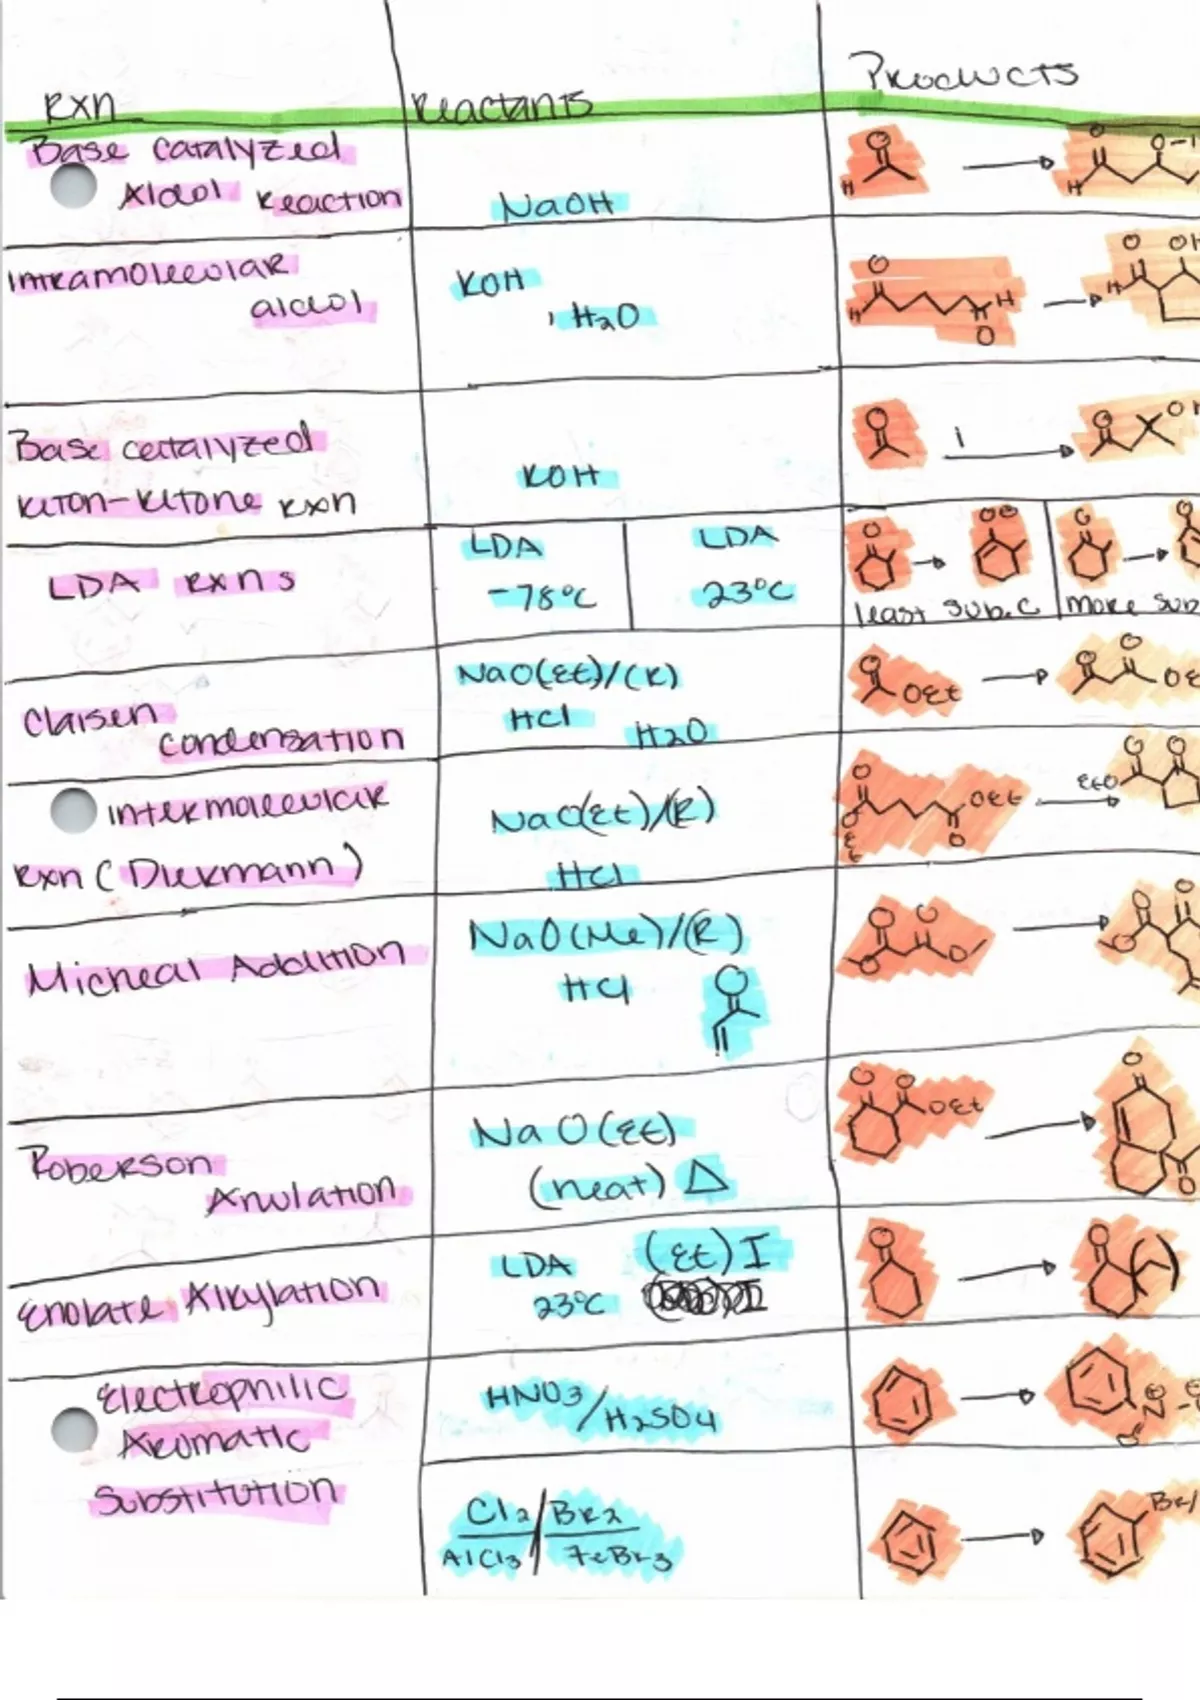 Rxn
Reactants
Products
Base catalyzed
Aldol Reaction
NaOH
O
H
O
H
O-
Intramolecular
aldol
KOH
, H2O
O
H
H
O
O
H
OH
Base catalyzed
Keton-Ketone rxn
KOH
O
i
O
OH
LDA rxns
LDA
-78°C
LDA
23°C
O
O⊖
O
O
least sub.C
more sub
Claisen
Condensation
NaO(Et)/(R)
HCl
H2O
O
OEt
O
O
OE
Intermolecular
Rxn (Diekmann)
NaO(Et)/(R)
HCl
O
O
Et
OEt
O
EtO
O
O
Micheal Addition
NaO(Me)/(R)
HCl
O
O
O
O
O
O
O
O
Roberson
Anulation
NaO(Et)
(neat) Δ
O
O
OEt
O
O
Enolate Alkylation
LDA
23°C
(Et)I
O
O
Electrophilic
Aromatic
Substitution
HNO3/H2SO4
N
Cl2/Br2
AlCl3
FeBr3
Br/